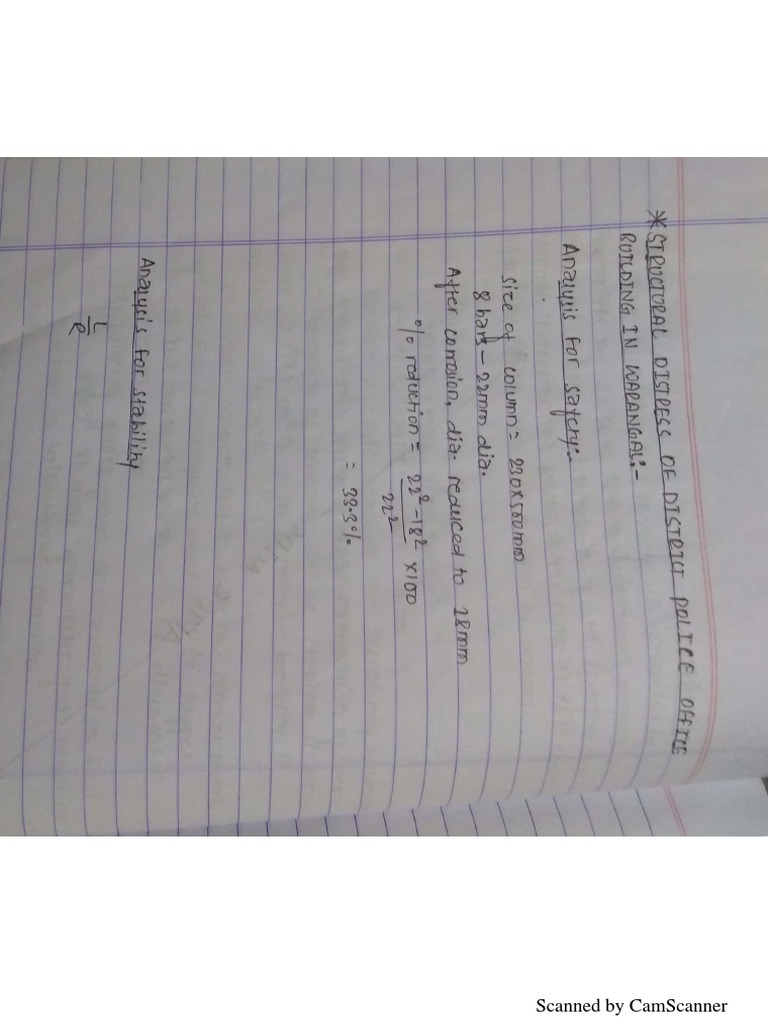 *STRUCTURAL DISTRESS OF DISTRICT POLICE OFFICE
BUILDING IN WARANGAL:-
Analysis for safety:-
Size of column = 230x500mm
8 bars - 22mm dia.
After corrosion, dia. reduced to 18mm
% reduction = 22² - 18² / 22² x100
= 33.3%
Analysis for stability
L
e
Scanned by CamScanner